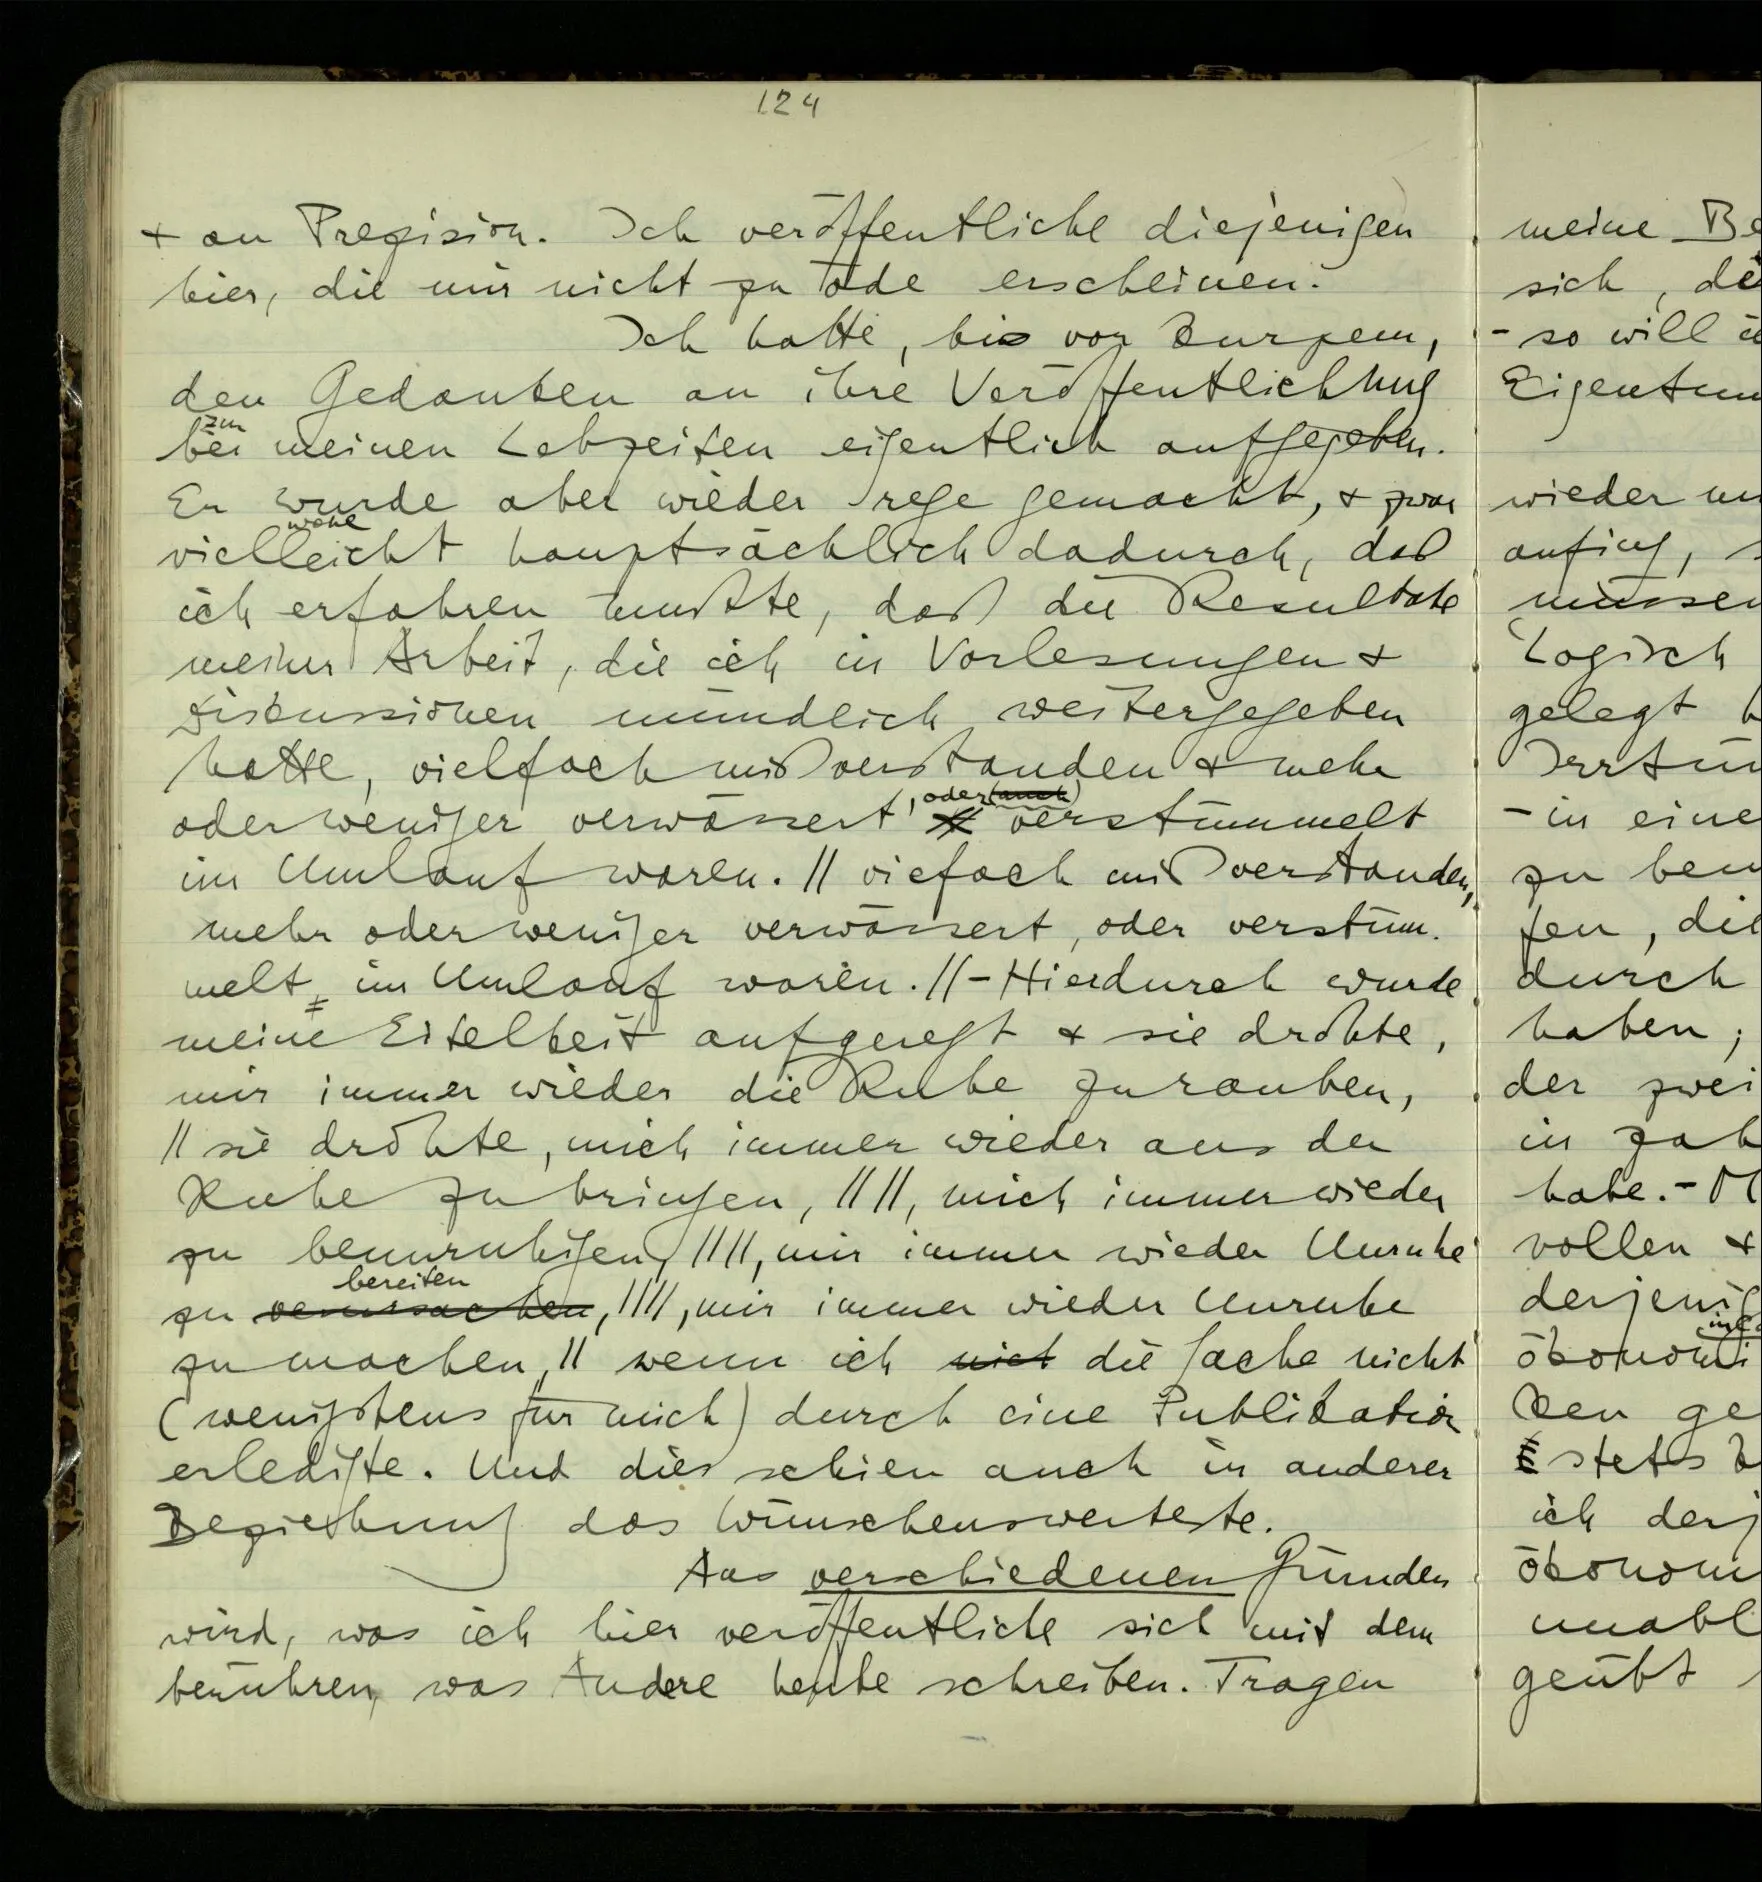 124
+ an Prezision. Ich veröffentliche diejenigen
hier, die mir nicht zu öde erscheinen.
Ich hatte, bis vor Kurzem,
den Gedanken an ihre Veröffentlichung
zu
bei meinen Lebzeiten eigentlich aufgegeben.
Er wurde aber wieder rege gemacht, + zwar
wohl
vielleicht hauptsächlich dadurch, daß
ich erfahren mußte, daß die Resultate
meiner Arbeit, die ich in Vorlesungen +
Diskussionen mündlich weitergegeben
hatte, vielfach mißverstanden + mehr
, oder (auch)
oder weniger verwässert verstümmelt
im Umlauf waren. || viefach mißverstanden,
mehr oder weniger verwässert, oder verstüm-
melt, im Umlauf waren. || – Hierdurch wurde
meine Eitelkeit aufgeregt + sie drohte,
mir immer wieder die Ruhe zu rauben,
|| sie drohte, mich immer wieder aus der
Ruhe zu bringen, || ||, mich immer wieder
zu beunruhigen, || ||, mir immer wieder Unruhe
bereiten
zu verursachen, || ||, mir immer wieder Unruhe
zu machen, || wenn ich nict die Sache nicht
(wenigstens für mich) durch eine Publikation
erledigte. Und dies schien auch in anderer
Beziehung das Wünschenswerteste.
Aus verschiedenen Gründen
wird, was ich hier veröffentliche sich mit dem
berühren, was Andere heute schreiben. Tragen
meine Be
sich, di
– so will i
Eigentum
wieder
anfing,
müssen
Logisch
gelegt
Irrtü
– in eine
zu
fen, die
durch
haben;
der zwei
in zah
habe. –
vollen +
derjenig
ökonomi
ken ge
stets
ich derj
ökonom
unabl
geübt